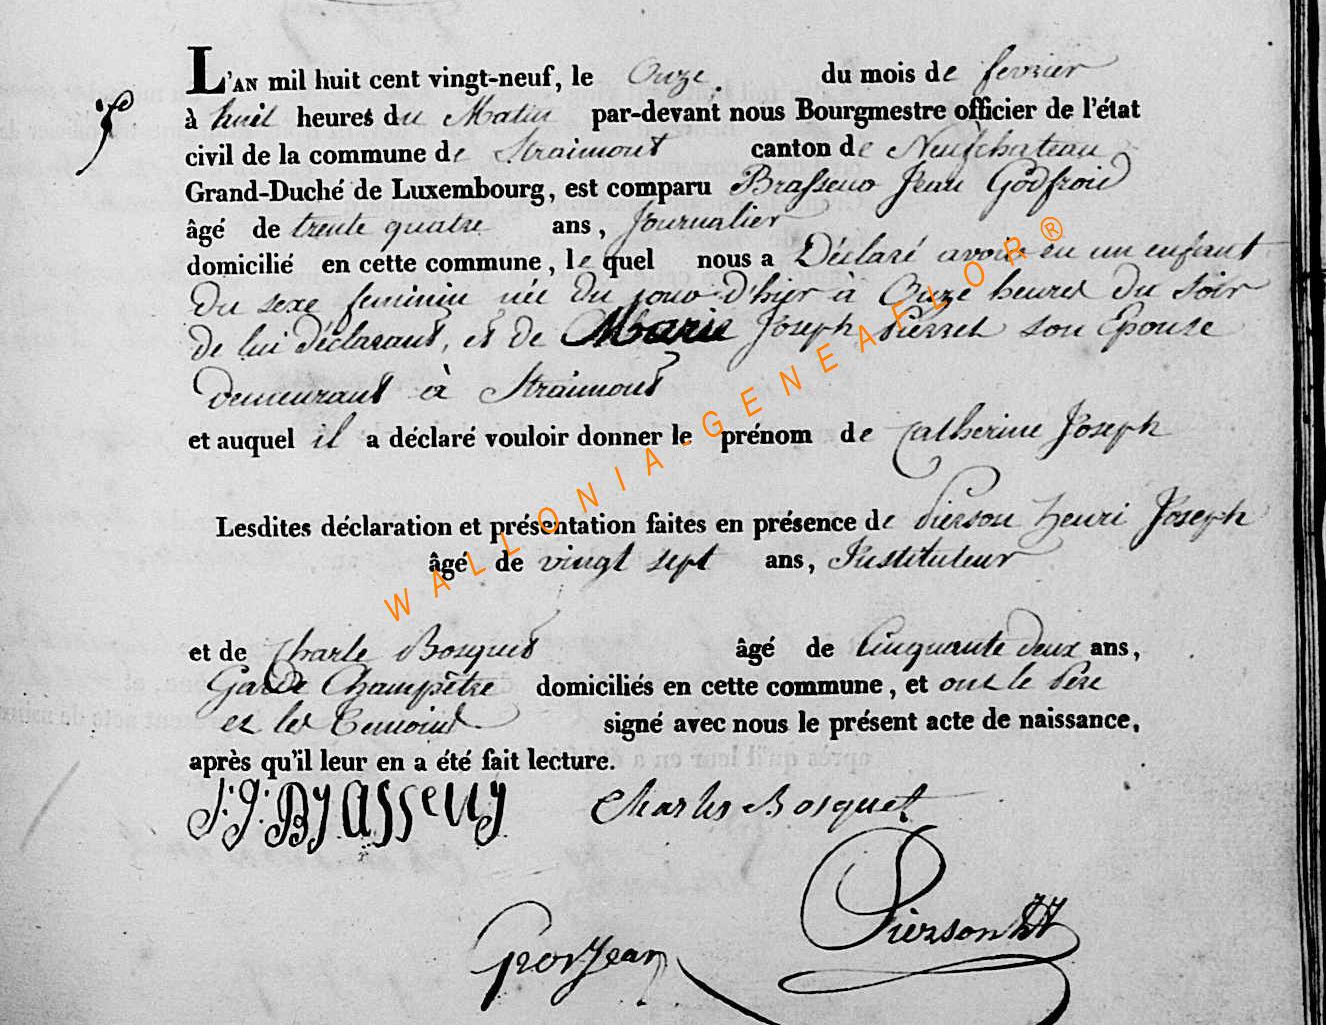 L'AN mil huit cent vingt-neuf, le Onze du mois de fevrier
à huit heures du Matin par-devant nous Bourgmestre officier de l'état
civil de la commune de Straimont canton de Neufchateau
Grand-Duché de Luxembourg, est comparu Jean Godfroid
âgé de trente quatre ans, Journalier
domicilié en cette commune, le quel nous a Déclaré avoir eu un enfant
Du sexe feminin née Du jour d'hier à Onze heures Du Soir
De lui Déclarant, et De Marie Joseph Pierret son Epouse
Demeurant à Straimont
et auquel il a déclaré vouloir donner le prénom de Catherine Joseph
Lesdites déclaration et présentation faites en présence de Pierson Henri Joseph
âgé de vingt sept ans, Instituteur
et de Charle Bosquet âgé de Cinquante Deux ans,
Garde Champêtre domiciliés en cette commune, et ont le Père
et les Temoins signé avec nous le présent acte de naissance,
après qu'il leur en a été fait lecture.
Charles Bosquet
Pierson HJ
Grosjean
WALLONIA-GENEAFLOR®